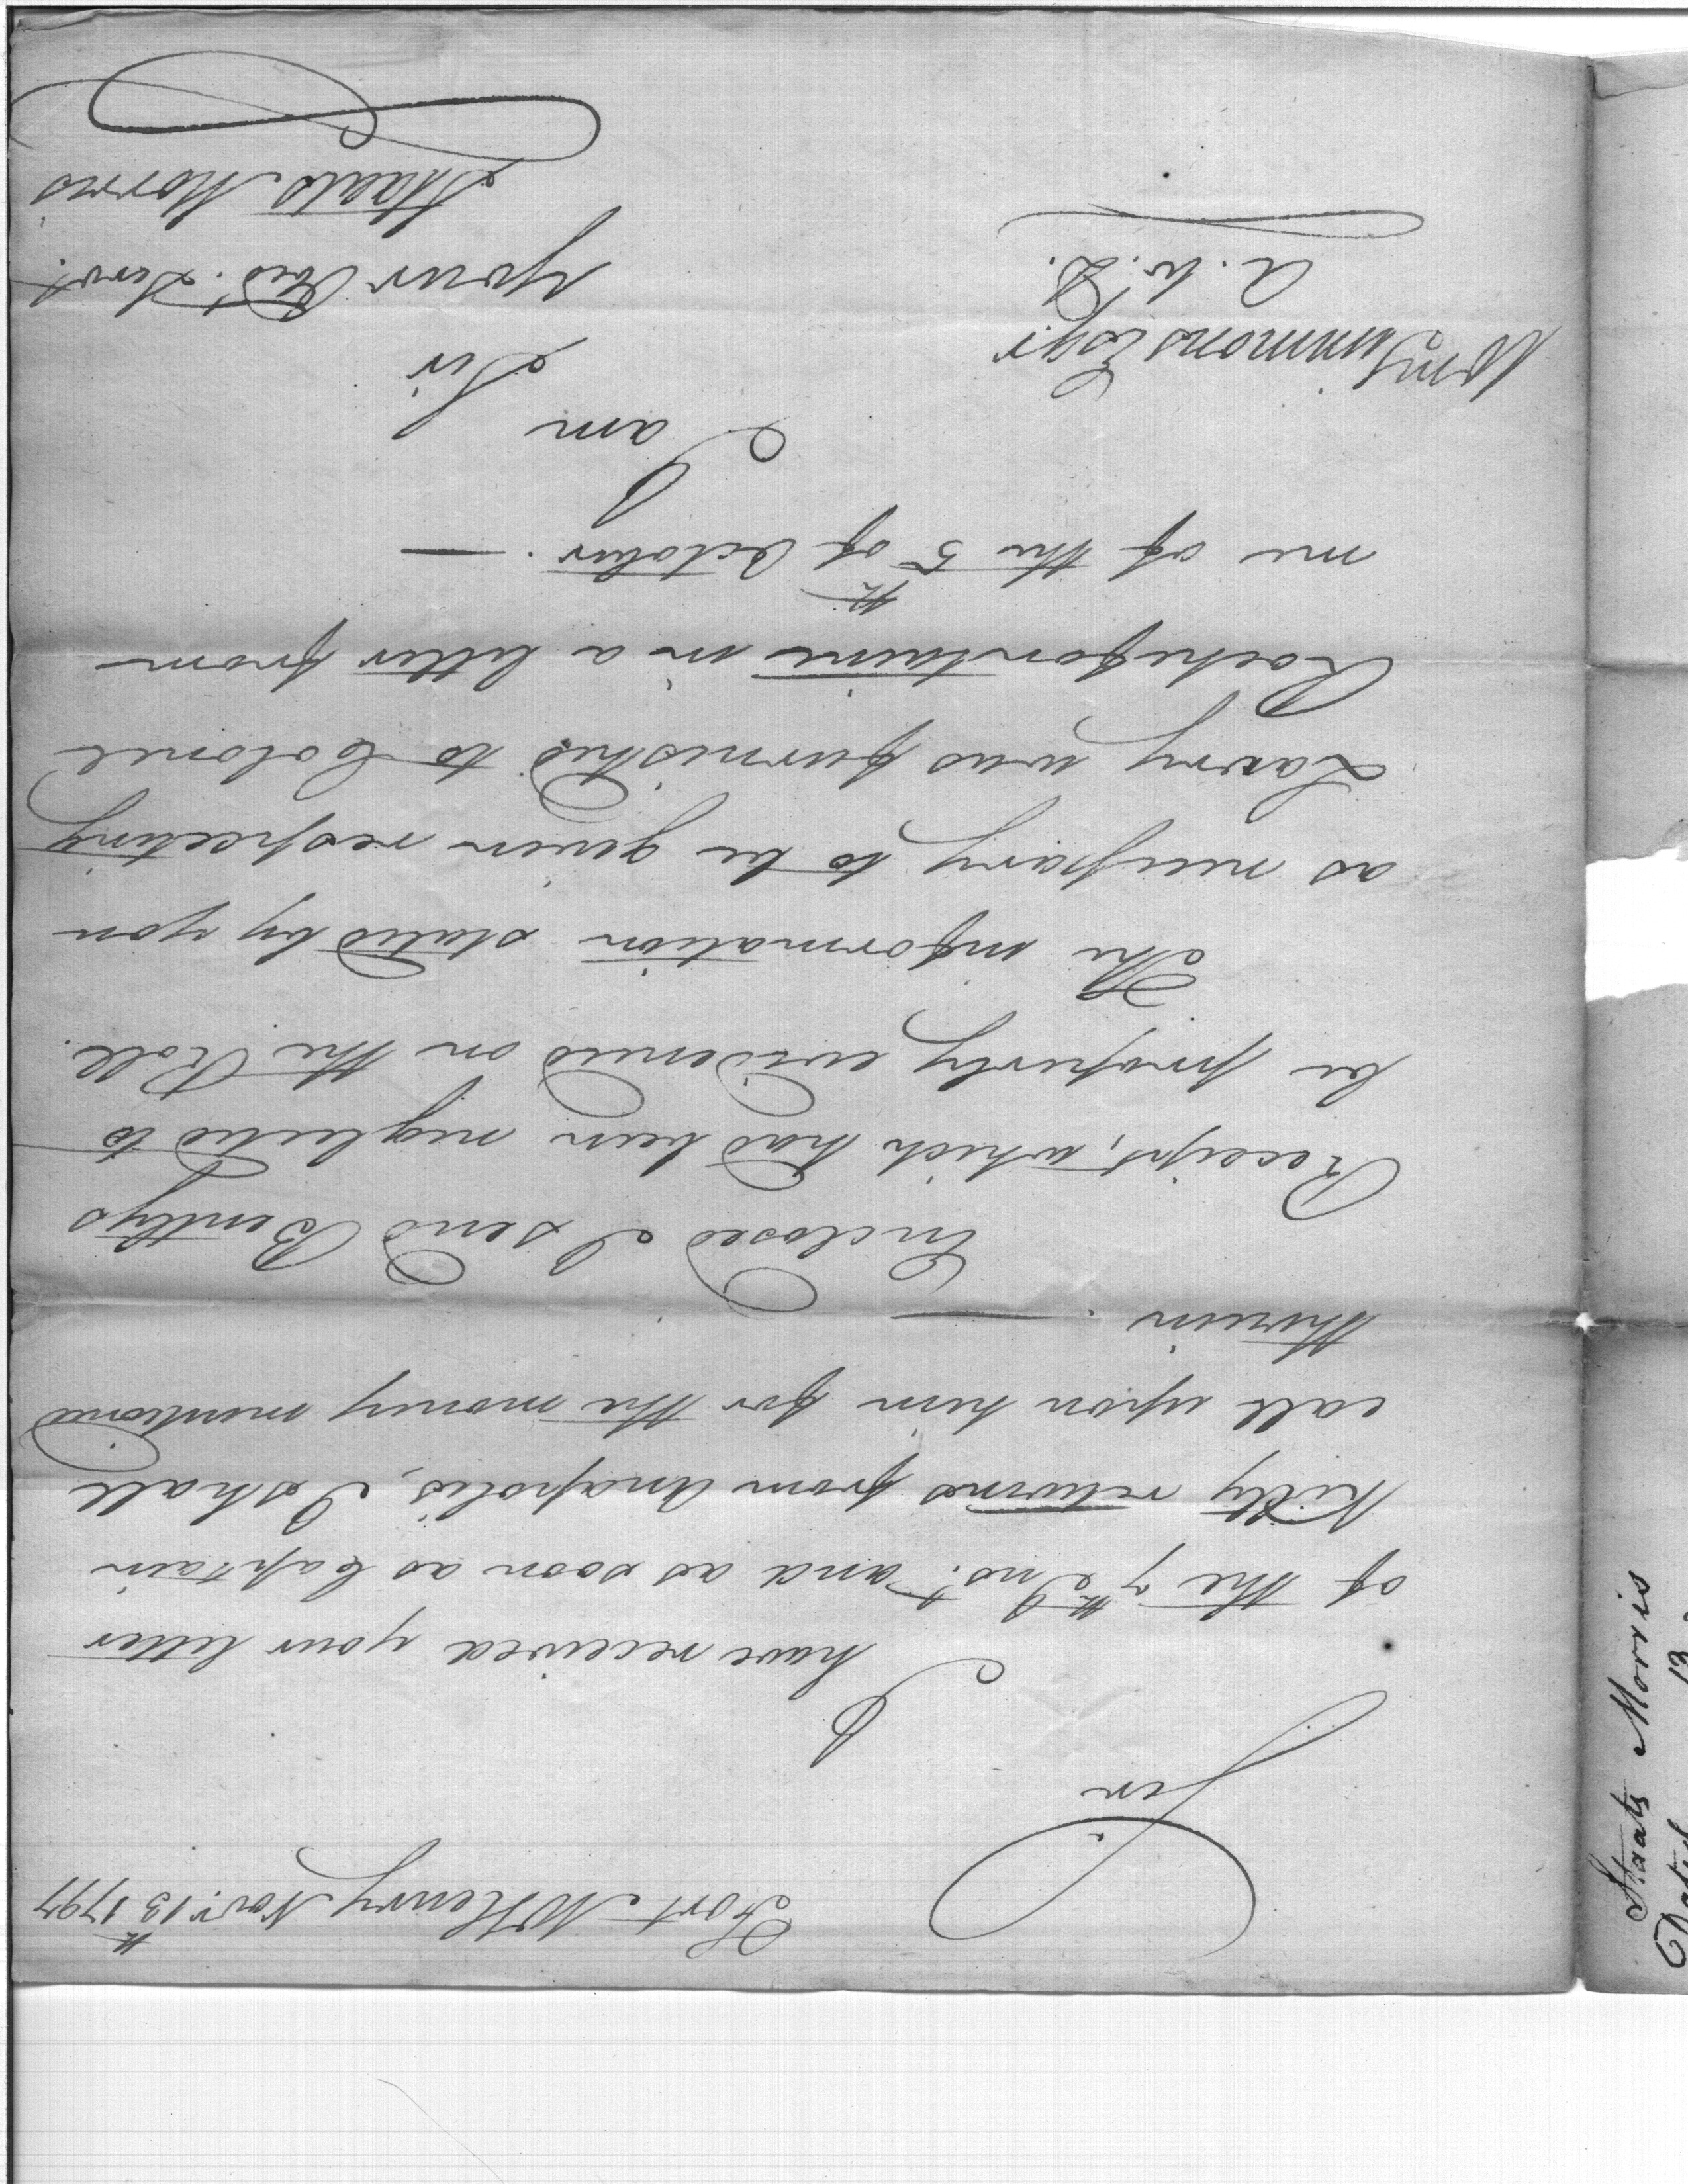 Fort McHenry Novr. 13th 1797
Sir
I have received your letter
of the 7th Inst. and as soon as Captain
Kilty returns from Anapolis, I shall
call upon him for the money mentioned
therein. —
Enclosed I send Bentlys
Receipt, which had been neglected to
be properly evidenced on the Roll.
The information stated by you
as necessary to be given respecting
Lavry was furnished to Colonel
Rochefontaine in a letter from
me of the 5th of October. —
I am
Sir
Your Obd. Servt.
Staats Morris
Wm Simmons Esqr
A. W. D.
Staats Morris
Dated 13